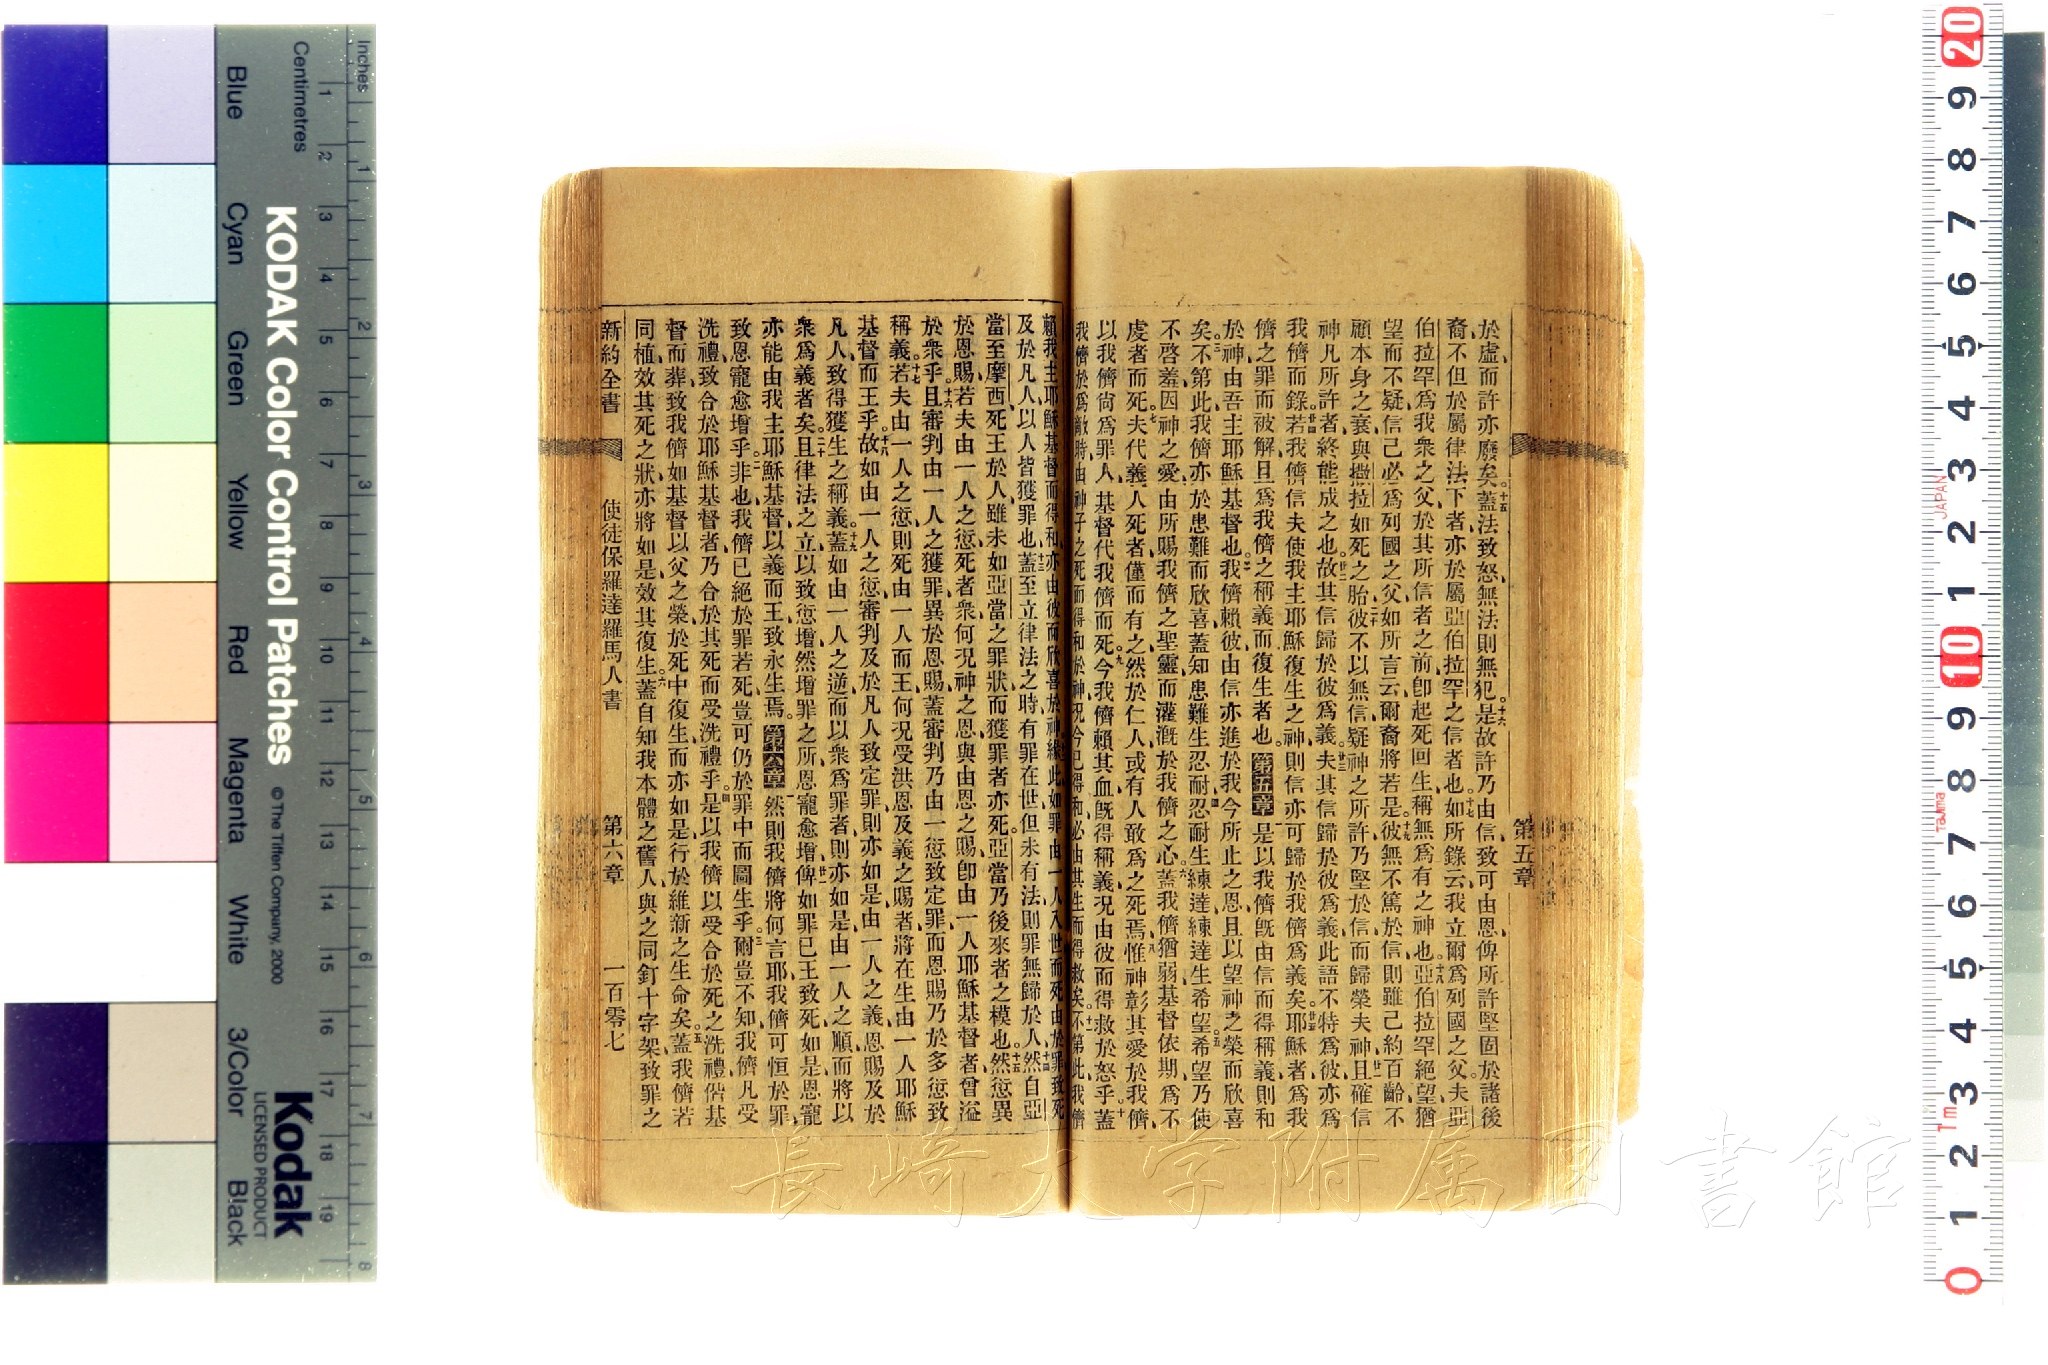 於虛而許亦廢矣蓋法致怒無法則無犯是故許乃由信致可由恩俾所許堅固於諸後
裔不但於屬律法下者亦於屬亞伯拉罕之信者也如所錄云我立爾爲列國之父夫亞
伯拉罕爲我衆之父於其所信者之前卽起死回生稱無爲有之神也亞伯拉罕絕望猶
望而不疑信己必爲列國之父如所言云爾裔將若是彼無不篤於信則雖己約百齡不
顧本身之衰與撒拉如死之胎彼不以無信疑神之所許乃堅於信而歸榮夫神且確信
神凡所許者終能成之也故其信歸於彼爲義夫其信歸於彼爲義此語不特爲彼亦爲
我儕而錄若我儕信夫使我主耶穌復生之神則信亦可歸於我儕爲義矣耶穌者爲我
儕之罪而被解且爲我儕之稱義而復生者也第五章是以我儕旣由信而得稱義則和
於神由吾主耶穌基督也我儕賴彼由信亦進於我今所止之恩且以望神之榮而欣喜
矣不第此我儕亦於患難而欣喜蓋知患難生忍耐忍耐生練達練達生希望希望乃使
不啓羞因神之愛由所賜我儕之聖靈而灌漑於我儕之心蓋我儕猶弱基督依期爲不
虔者而死夫代義人死者僅而有之然於仁人或有人敢爲之死焉惟神彰其愛於我儕
以我儕尙爲罪人基督代我儕而死今我儕賴其血旣得稱義況由彼而得救於怒乎蓋
我儕於爲敵時由神子之死而得和於神況今已得和必由其生而得救矣不第此我儕
第五章
賴我主耶穌基督而得和亦由彼而欣喜於神緣此如罪由一人入世而死由於罪致死
及於凡人以人皆獲罪也蓋至立律法之時有罪在世但未有法則罪無歸於人然自亞
當至摩西死王於人雖未如亞當之罪狀而獲罪者亦死亞當乃後來者之模也然愆異
於恩賜若夫由一人之愆死者衆何況神之恩與由恩之賜卽由一人耶穌基督者曾溢
於衆乎且審判由一人之獲罪異於恩賜蓋審判乃由一愆致定罪而恩賜乃於多愆致
稱義若夫由一人之愆則死由一人而王何況受洪恩及義之賜者將在生由一人耶穌
基督而王乎故如由一人之愆審判及於凡人致定罪則亦如是由一人之義恩賜及於
凡人致得獲生之稱義蓋如由一人之逆而以衆爲罪者則亦如是由一人之順而將以
衆爲義者矣且律法之立以致愆增然增罪之所恩寵愈增俾如罪已王致死如是恩寵
亦能由我主耶穌基督以義而王致永生焉第六章然則我儕將何言耶我儕可恒於罪
致恩寵愈增乎非也我儕已絕於罪若死豈可仍於罪中而圖生乎爾豈不知我儕凡受
洗禮致合於耶穌基督者乃合於其死而受洗禮乎是以我儕以受合於死之洗禮偕基
督而葬致我儕如基督以父之榮於死中復生而亦如是行於維新之生命矣蓋我儕若
同植效其死之狀亦將如是效其復生蓋自知我本體之舊人與之同釘十字架致罪之
新約全書 使徒保羅達羅馬人書 第六章 一百零七
長崎大学附属図書館
Inches
Centimetres
Blue Cyan Green Yellow Red Magenta White 3/Color Black
KODAK Color Control Patches © The Tiffen Company, 2000
Kodak
LICENSED PRODUCT
1 2 3 4 5 6 7 8 9 10 11 12 13 14 15 16 17 18 19
1 2 3 4 5 6 7 8
20 9 8 7 6 5 4 3 2 1 10 9 8 7 6 5 4 3 2 1 0
JAPAN
Tajima
Tm